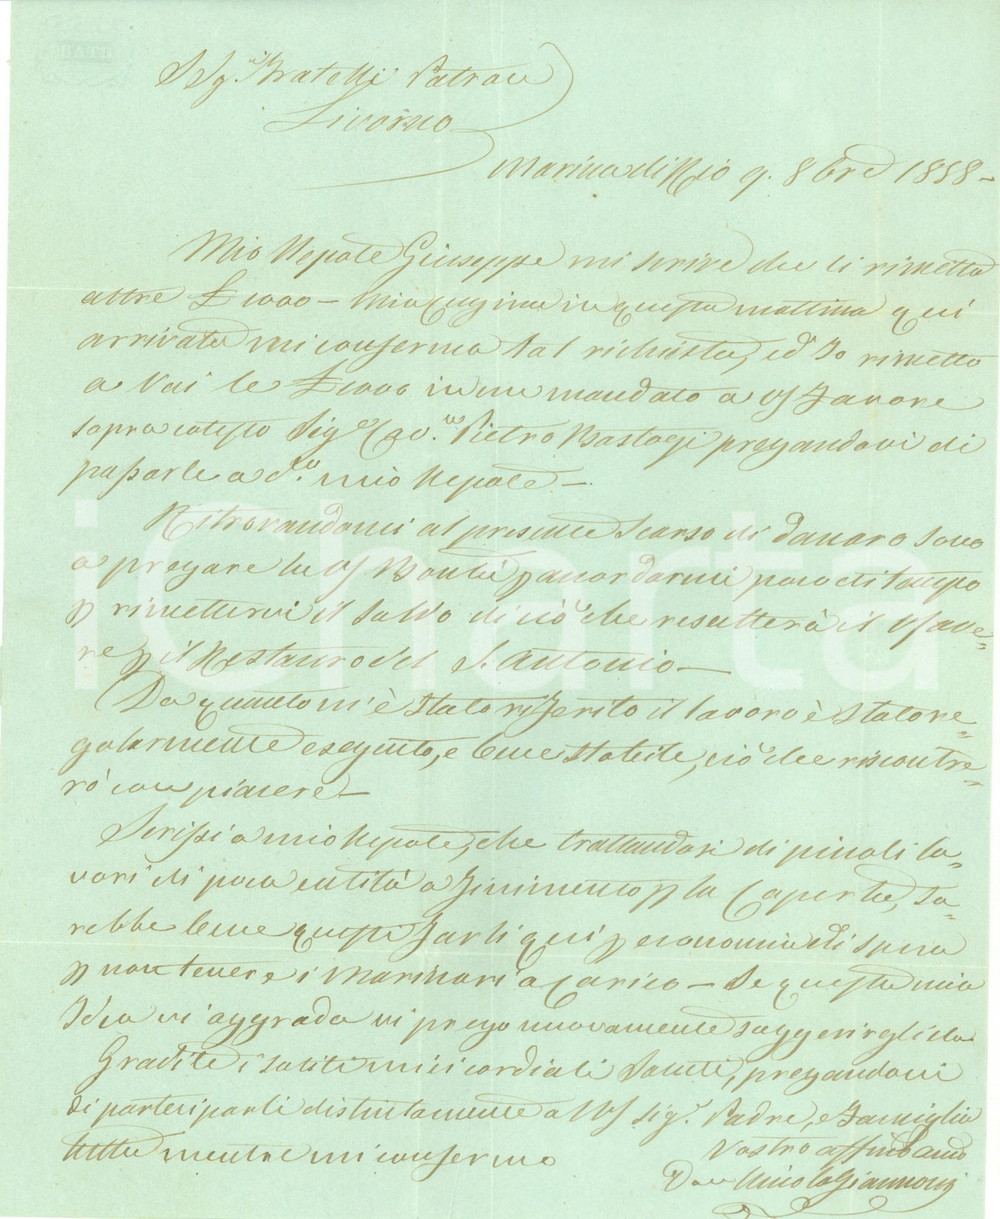 BATH
Sigri Fratelli Patrone
Livorno
Marina di Rio 9. 8bre 1858 -
Mio Nepote Giuseppe mi scrive che li rimetta
altre £ 1000 - Mia Cugina in questa mattina qui
arrivata mi conferma tal richiesta, ed Io rimetto
a Voi le £ 1000 in un mandato a Vs/ favore
sopra cotesto Sigre Cav.re Pietro Bastogi pregandovi di
passarle a do. mio Nepote -
Ritrovandomi al presente scarso di danaro sono
a pregare la Vs/ Bontà p accordarmi poco di tempo
p rimettervi il saldo di ciò che resulterà il Vs/ ave=
re p il Restauro del S. Antonio -
Da quanto m'è stato riferito il lavoro è stato re=
golarmente eseguito, e bene stabile, ciò che riscontre=
rò con piacere -
Scrissi a mio Nepote, che trattandosi di piccoli la=
vori di poca entità a finimento p la Coperta, sa=
rebbe bene questi farli qui p economia di spesa
p non tenere i Marinari a Carico - Se questa mia
Idea vi aggrada vi prego nuovamente suggerirgliela
Gradite i soliti miei cordiali Saluti, pregandovi
di parteciparli distintamente a Vs/ Sigr. Padre, e Famiglia
tutta mentre mi confermo
Vostro affmo amico
Don Nicola Giannoni
iCharta